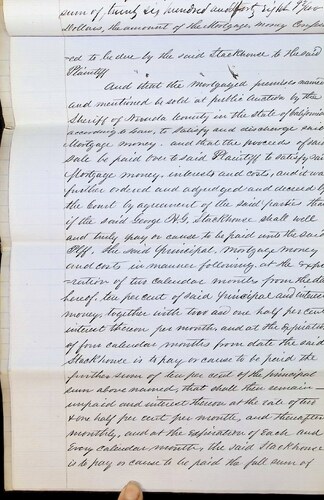 sum of, Twenty Six hundred and forty eight
Dollars, the amount of the Mortgage money Confess
ed to be due by the said Stackhouse to the said
Plaintiff
And that the mortgaged premises named
and mentioned be sold at public Auction by the
Sheriff of Nevada County in the State of California
according to Law, to satisfy and discharge said
Mortgage money. and that the proceeds of said
sale be paid over to said Plaintiff to satisfy said
Mortgage money, interest and costs, and it was
further ordered and adjudged and decreed by
the Court by agreement of the said parties that
if the said George H.G. Stackhouse shall well
and truly pay, or cause to be paid unto the said
Plff. the said Principal, Mortgage money
and costs in manner following, at the expi
ration of two calendar months from the date
hereof, ten per cent of said Principal and interest
money, together with two and one half per cent
interest thereon per month, and at the Expiration
of four calendar months from date the said
Stackhouse is to pay or cause to be paid the
further sum of ten per cent of the principal
sum above named, that shall then remain
unpaid and interest thereon at the rate of two
& one half per cent per month, and thereafter
monthly, and at the expiration of Each and
Every calendar month, the said Stackhouse
is to pay or cause to be paid the full sum of